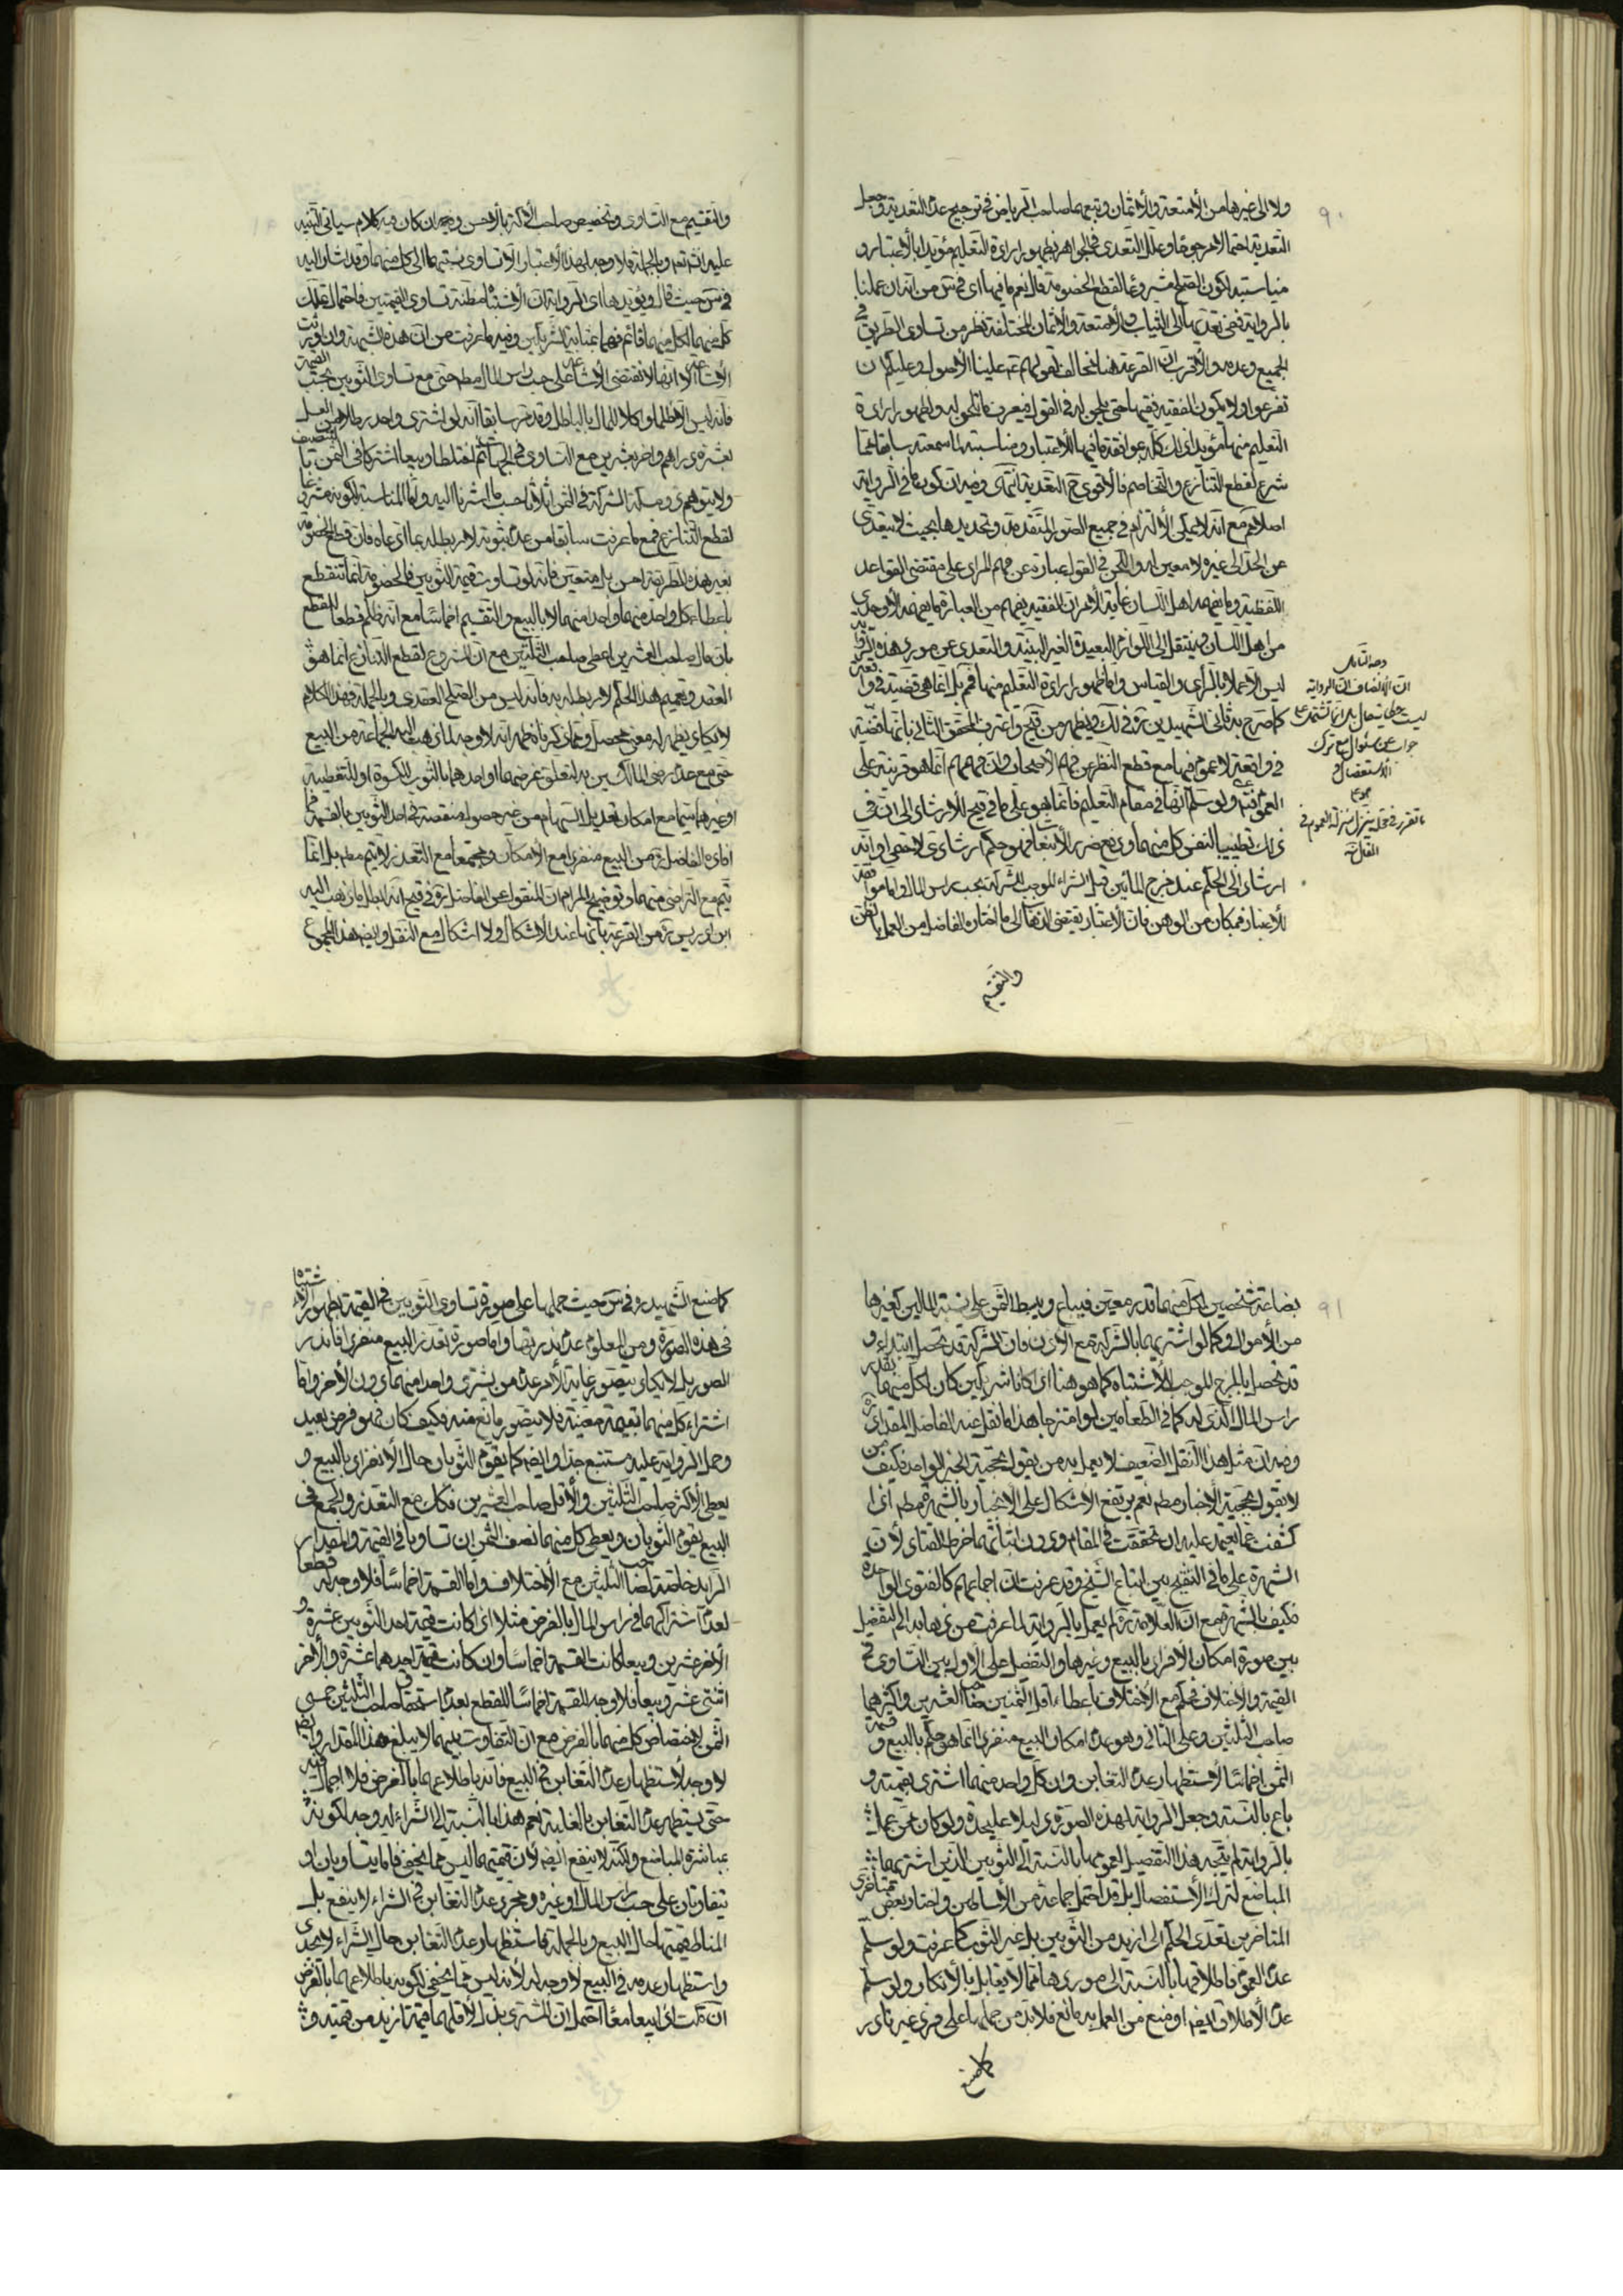 ولا الى غيرها من الأمتعة والأثمان وتبعهما صاحب الرياض في ترجيح عدم التعدية وجعل
التعدية احتمالا مرجوحا وعلل التعدى في الجواهر بظهور ارادة التعليم مؤيدا بالأعتبار و
مناسبته لكون الصلح مشروعا لقطع الخصومة قال نعم ما فيها اى في س من انه ان عملنا
بالرواية ففى تعديها الى الثياب والأمتعة والأثمان المختلفة نظر من تساوى الطريق في
الجميع وعدمه والأقرب ان القرعة هنا مخالف لقولهم ع علينا الأصول وعليكم ان
تفرعوا ولا يكون الفقيه فقيها حتى يلحن له في القول فيعرف ما يلحن له وظهور ارادة
التعليم منها مؤيدا ذلك كله بموافقة ما فيها للأعتبار ومناسبته لما سمعته سابقا مما
شرع لقطع التنازع والتخاصم فالأقوى ح التعدية انتهى وفيه ان كون ما في الرواية
اصلا مع انه لا يمكن الألتزام في جميع الصور المتقدمة وتحديدها بحيث لا يتعدى
عن الحد الى غيره لا معين له واللحن في القول عبارة عن فهم المراد على مقتضى القواعد
اللفظية وما يفهمه اهل اللسان غاية الأمر ان الفقيه يفهم من العبارة ما يفهمه الأوحدى
من اهل اللسان فينتقل الى اللوازم البعيدة الغير البينة والتعدى عن مورد هذه الرواية
ليس الا عملا بالرأى والقياس واما ظهور ارادة التعليم منها فمم بل انما هي قضية في واقعة
كما صرح به ثانى الشهيدين ره في لك ويظهر من قيح واعترف المحقق الثانى بانها قضية
في واقعة لا عموم فيها مع قطع النظر عن فهم الأصحاب وان فهمهم انما هو قرينة على
العموم فتم ولو سلم انها في مقام التعليم فانما هو على ما في قيح للأرشاد الى ان في
ذلك تطييبا لنفس كل منهما ودفع ضرر الأتباع فهو حكم ارشادى لا حتمى او انه
ارشاد الى الحكم عند مزج المالين قبل الشراء الموجب للشركة بحسب راس المال واما موافقة
للأعتبار فبمكان من الوهن فان الأعتبار يقتضى الذهاب الى ما اختاره الفاضل من العمل بالظن
والتقسيم
وجه التأمل
ان الأنصاف ان الرواية
جواب عن سئوال مع ترك
الاستفصال و
هو كما
تقرر في محله ينزل منزلة العموم في
المقال منه
والتقسيم مع التساوى وتخصيص صاحب الأكثر بالأحسن وفيه ان كان فيه كلام سياتى التنبيه
عليه انشاء الله تعالى وبالجملة فلا وجه لهذا الأعتبار الا تساوى نسبتهما الى كل منهما وقد اشار اليه
في س حيث قال ويؤيدها اى الرواية ان الأشتباه مظنة تساوى القيمتين فاحتمال تملك
كل منهما لكل منهما قائم فهما بمثابة الشريكين وفيه ما عرفت من ان هذه الشبهة وان اورثت
فانه ليس الا ظلما واكلا للمال بالباطل وقد مر سابقا انه لو اشترى واحد رطلا من العسل
بعشرة دراهم واخر بعشرين مع التساوى في الجهات ثم اختلطا وبيعا اشتركا في الثمن بالتنصيف
ولا يتوهم ذو مسكة الشركة في الثمن اثلاثا حسب ما اشرنا اليه واما المناسبة لكونه مشروعا
لقطع التنازع فمع ما عرفت سابقا من عدم ثبوته لا ربط له بما ادعاه فان قطع الخصومة
بغير هذه الطريقة امس بل متعين فانه لو تساوت قيمة الثوبين فالخصومة انما تنقطع
باعطاء كل واحد منهما واحدا منهما لا بالبيع والتقسيم اخماسا مع انه ظلم قطعا للقطع
بان مال صاحب العشرين اعطى صاحب الثلثين مع ان المشروع لقطع التنازع انما هو
العقد وتعميم هذا الحكم لا ربط له به فانه ليس من الصلح العقدى وبالجملة فهذا الكلام
لا يكاد يظهر له معنى محصل ومما ذكرنا ظهر انه لا وجه لما ذهب اليه الجماعة من البيع
حتى مع عدم رضى المالكين به لتعلق غرضهما او احدهما بالثوب للكسوة او للتغطية
او غيرهما سيما مع امكان تعديل السهام من غير حصول منقصة في احد الثوبين بالقسمة فما
افاده الفاضل ره من البيع منفردا مع الأمكان ومجتمعا مع التعذر لا يتم مطلقا بل انما
يتم مع التراضى منهما وتوضيح المرام ان المنقول عن الفاضل ره في قيح انه ابطل ما ذهب اليه
ابن ادريس ره من القرعة بانها عند الاشكال ولا اشكال مع النقل وايضا هذا المجموع
بضاعة شخصين لكل منهما قدر معين فيباع ويبسط الثمن على نسبة المالين كغيرها
من الأموال وكما لو اشتريهما بالشركة مع الأذن فان الشركة قد تحصل ابتداء و
قد تحصل بالمزج الموجب للأشتباه كما هو هنا اذ كانا شريكين كان لكل منهما بقدر
راس المال الذى له كما في الطعامين لو امتزجا هذا ما نقل عنه الفاضل المقداد ره
وفيه ان مثل هذا النقل الضعيف لا يعمل به من يقول بحجية الخبر الواحد فكيف بمن
لا يقول بحجية الأخبار مطلقا نعم يرتفع الأشكال على الأنجبار بالشهرة مطلقا اذا
كشفت عما يعتمد عليه ان تحققت في المقام ودون اثباتهما خرط القتاد لأن
الشهرة على ما في التنقيح بين اتباع الشيخ وقد عرفت ان اجماعهم كالفتوى الواحدة
فكيف بالشهرة مع ان العلامة ره لم يعمل بالرواية لما عرفت من ذهابه الى التفصيل
بين صورة امكان الأفراد بالبيع وغيرها والتفصيل على الأول بين التساوى في
القيمة والاختلاف فحكم مع الأختلاف باعطاء اقل الثمنين صاحب العشرين واكثرهما
صاحب الثلثين وعلى الثانى وهو عدم امكان البيع منفردا انما هو حكم بالبيع و قسمة
الثمن اخماسا لأستظهار عدم التغابن وان كل واحد منهما اشترى بقيمته و
باع بالنسبة وجعل الرواية لهذه الصورة دليلا على حدة ولو كان ممن عمل
بالرواية لم يتجه هذا التفصيل لعمومها بالنسبة الى الثوبين الذين اشتريهما
المباضع لترك الأستفصال بل قد احتمل جماعة من الأساطين واختار بعض
المتاخرين تعدى الحكم الى ازيد من الثوبين بل غير الثوب كما عرفت ولو سلم
عدم العموم فاطلاقها بالنسبة الى موردها مما لا يقابل بالأنكار ولو سلم
عدم الأطلاق ايضا او منع من العمل به مانع فلا بد من حملها على فرد غير نادر
كما صنع
كما صنع الشهيد ره في س حيث حملها على صورة تساوى الثوبين في القيمة لظهور الأشتباه
في هذه الصورة ومن المعلوم عدم ندرتها واما صورة تعذر البيع منفردا فاندر
الصور بل لا يكاد يتصور غاية الأمر عدم من يشترى واحدا منهما دون الأخر واما
اشتراء كل منهما بقيمة معينة فلا يتصور مانع منه وكيف كان فهو فرض بعيد
وحمل الرواية عليه مستتبع جدا وايضا كما يقوم الثوبان حال الأنفراد بالبيع و
يعطى الأكثر صاحب الثلثين والأقل صاحب العشرين فكك مع التعذر والجمع في
البيع يقوم الثوبان ويعطى كل منهما نصف الثمن ان تساويا في القيمة والمقدار
الزايد خاصة لصاحب الثلثين مع الأختلاف واما القسمة اخماسا فلا وجه له قطعا
لعدم اشتراكهما في راس المال بالفرض مثلا اذا كانت قيمة احد الثوبين عشرة و
الأخر عشرين وبيعا كانت القسمة اخماسا وان كانت قيمة احدهما عشرة والأخر
اثنتى عشر وبيعا فلا وجه للقسمة اخماسا للقطع بعدم استحقاق صاحب الثلثين خمسى
الثمن لأختصاص كل منهما بالفرض مع ان التفاوت بينهما لا يبلغ هذا المقدار وايضا
لا وجه لأستظهار عدم التغابن في البيع فانه باطلاعهما بالفرض فلا اجمال فيه
حتى يستظهر عدم التغابن بالغلبة نعم هذا بالنسبة الى الشراء له وجه لكونه
بمباشرة المباضع ولكنه لا ينفع ايضا لأن قيمتهما ليس مما يخفى فاما يتساويان او
يتفاوتان على حسب راس المال او غيره ومجرد عدم التغابن في الشراء لا ينفع بل
المناط قيمتها حال البيع وبالجملة فاستظهار عدم التغابن حال الشراء لا يجدى
واستظهار عدمه في البيع لا وجه له لأنه ليس مما يخفى لكونه باطلاعهما بالفرض
ان قلت اذا بيعا معا احتمل ان المشترى بذل لأقلهما قيمة ازيد من قيمته و